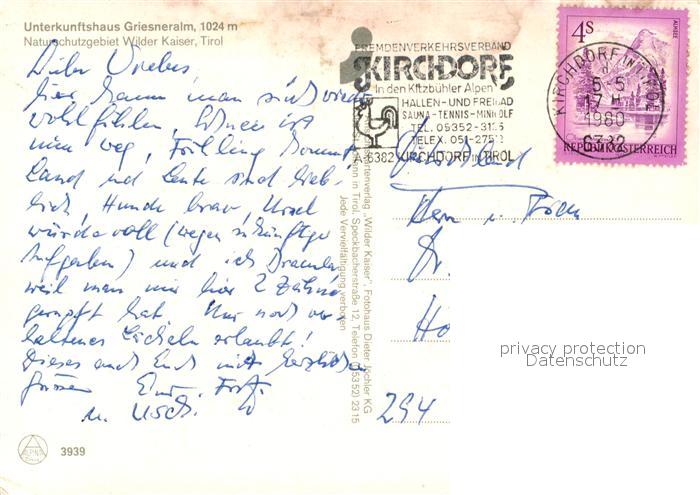 Unterkunftshaus Griesneralm, 1024 m
Naturschutzgebiet Wilder Kaiser, Tirol
hier kann man sich wieder
wohlfühlen, Schnee ist
nun weg, Frühling kommt
Land und Leute sind lieb-
lich, Hunde brav, Ursel
würdevoll (wegen zukünftiger
Aufgaben) und ich
weil man mir hier 2 Zähne
hat. Nur noch ver-
haltenes Lächeln erlaubt!
Dieses und mit herzlichen
Grüssen
u. Usch.
ALPINA
3939
FREMDENVERKEHRSVERBAND
KIRCHDORF
In den Kitzbühler Alpen
HALLEN-UND FREIBAD
SAUNA-TENNIS-MINIGOLF
TEL. 05352-31
TELEX. 051-275
A-6382 KIRCHDORF IN TIROL
4S
ALMSEE
REPUBLIK ÖSTERREICH
KIRCHDORF IN TIROL
5.5
1980
6382
Kartenverlag „Wilder Kaiser", Fotohaus Dieter Jöchler KG
in Tirol, Speckbacherstraße 12, Telefon (05352) 2315
Jede Vervielfältigung verboten
Deutschland
Herrn u. Frau
Dr.
Ho
294
privacy protection
Datenschutz